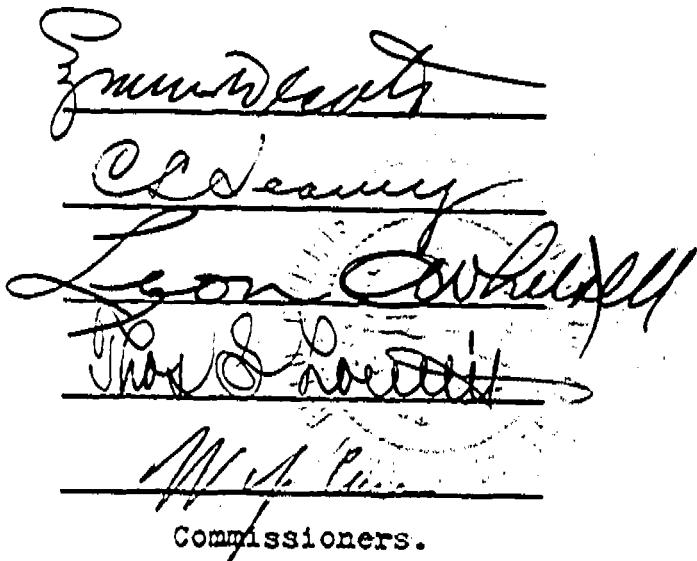 Decoto
C L Seavey
Leon O Whitsell
Thos S Louttit
Commissioners.